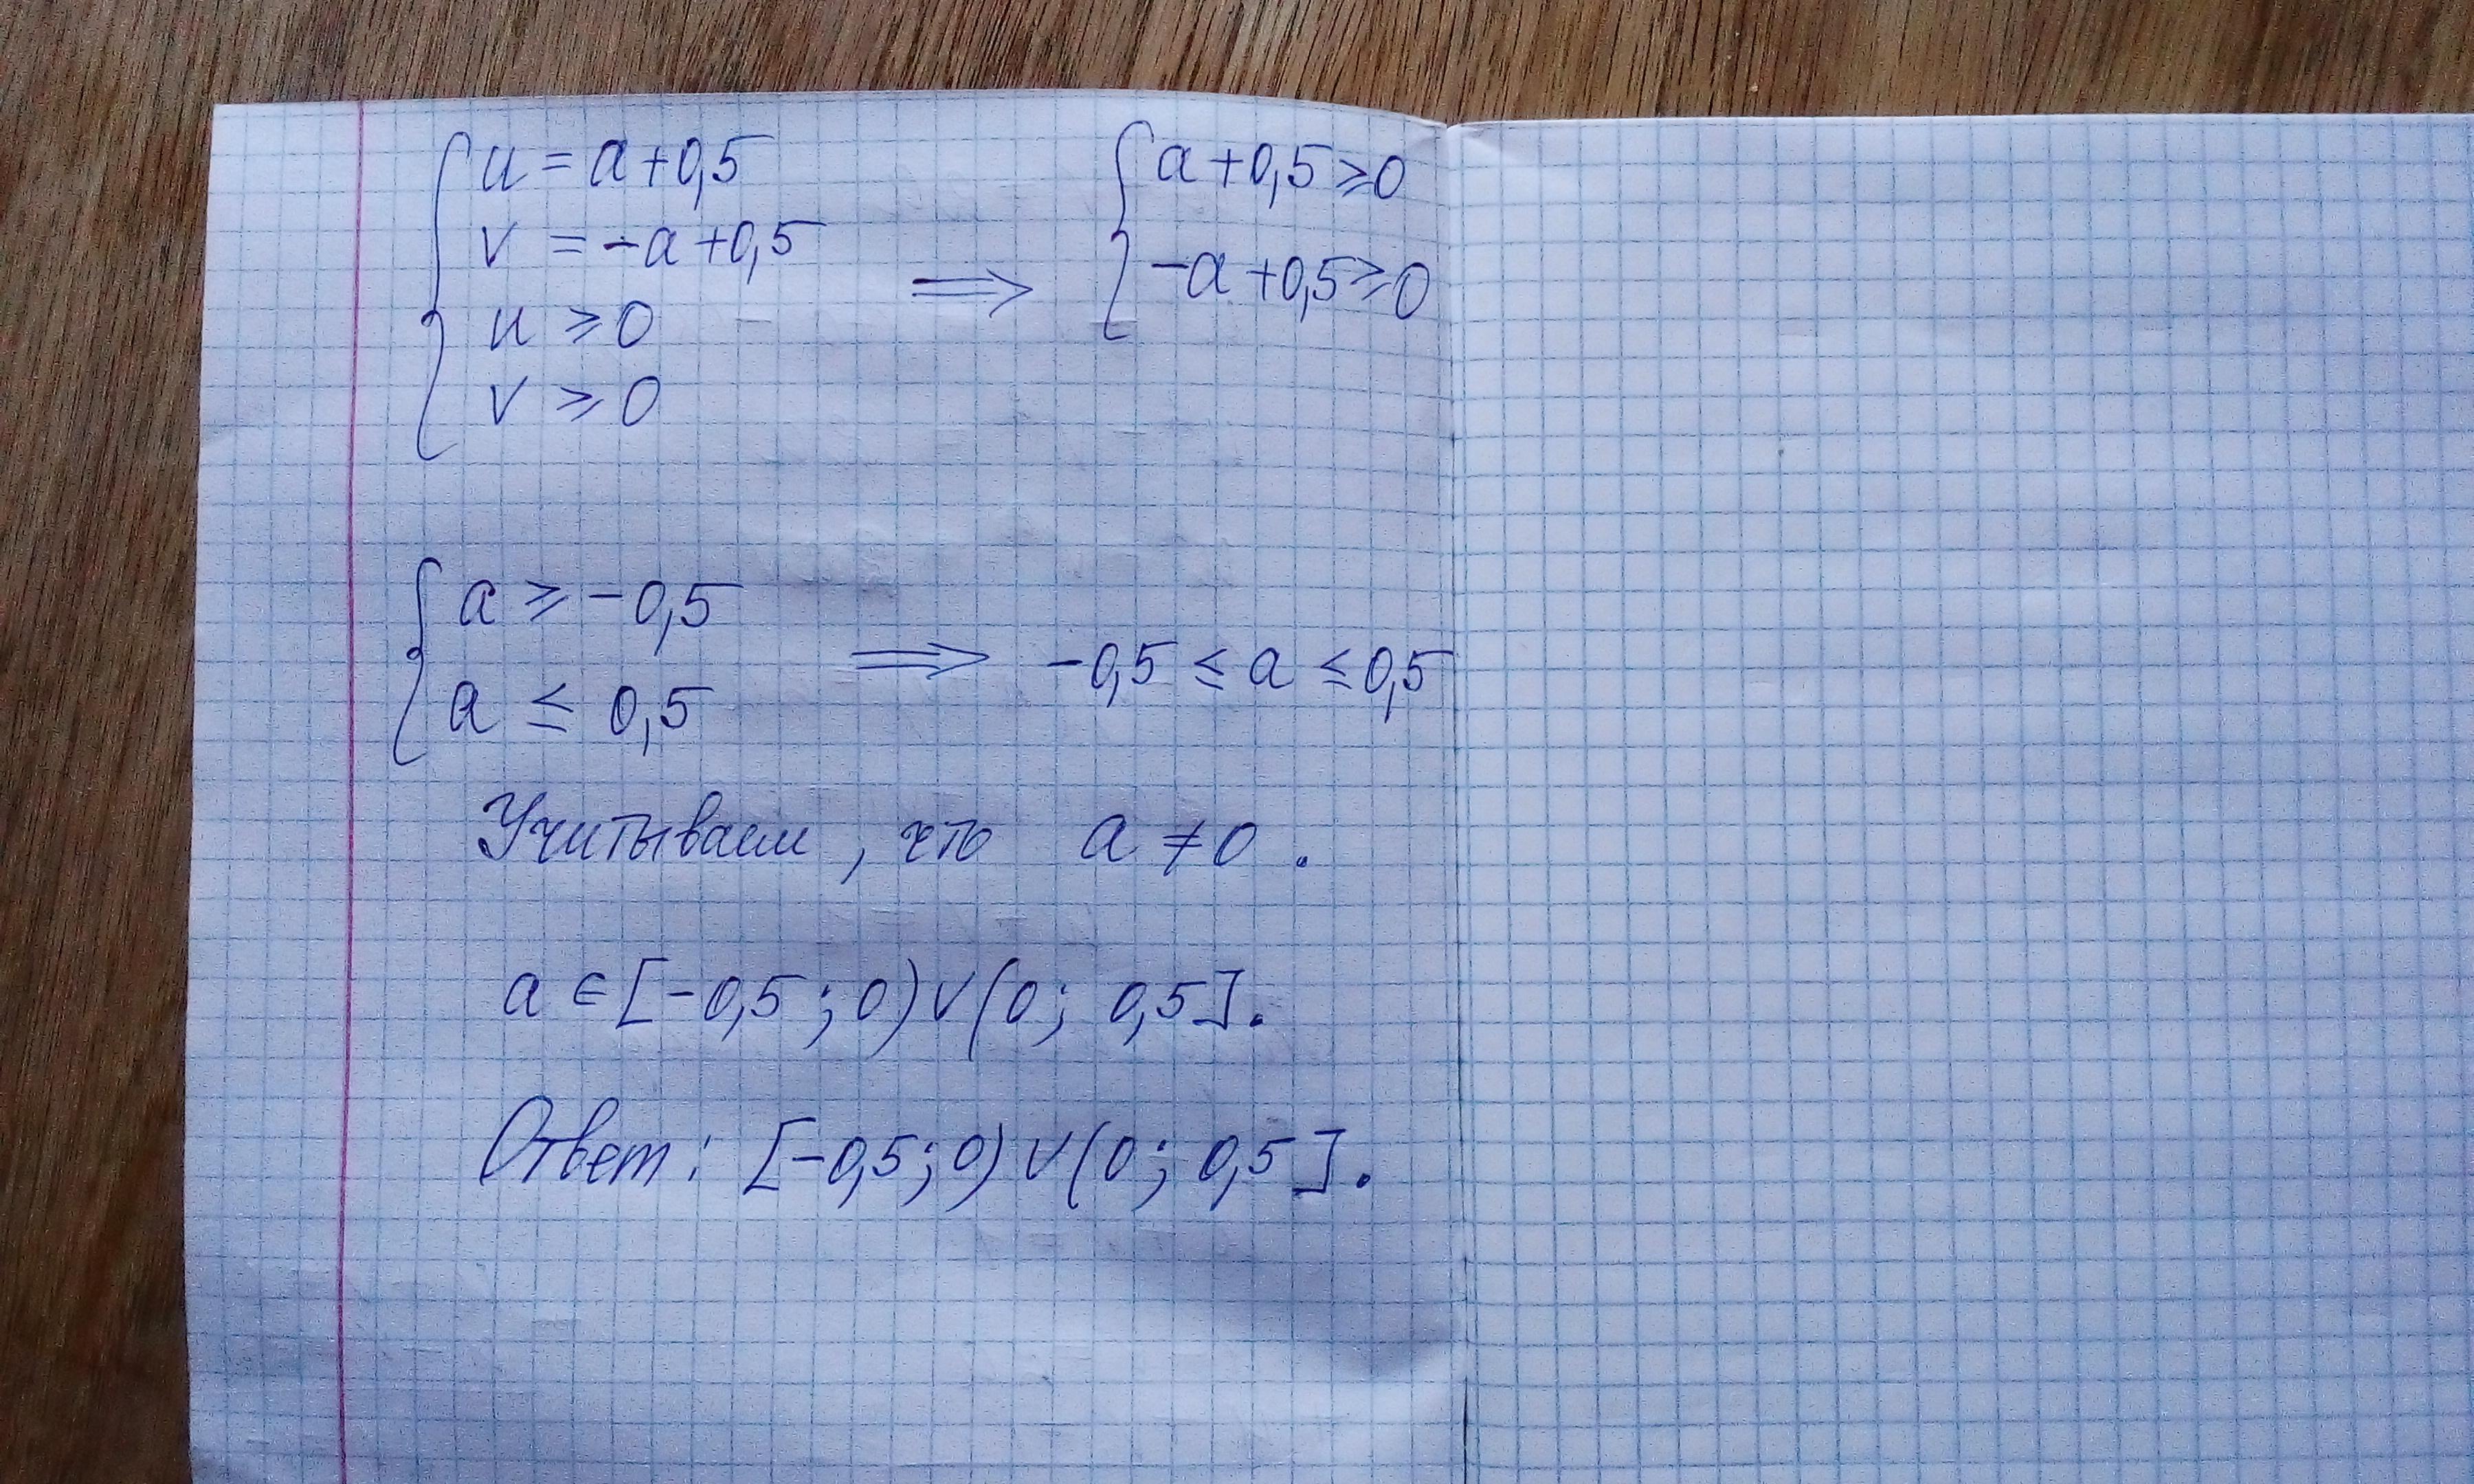 u = a+0,5
v = -a+0,5
u ⩾ 0
v ⩾ 0
⟹
a+0,5⩾0
-a+0,5⩾0
a ⩾ -0,5
a ≤ 0,5
⟹ -0,5 ≤ a ≤ 0,5
Учитываем, что a ≠ 0.
a ∈ [-0,5; 0) ∨ (0; 0,5].
Ответ: [-0,5; 0) ∨ (0; 0,5].